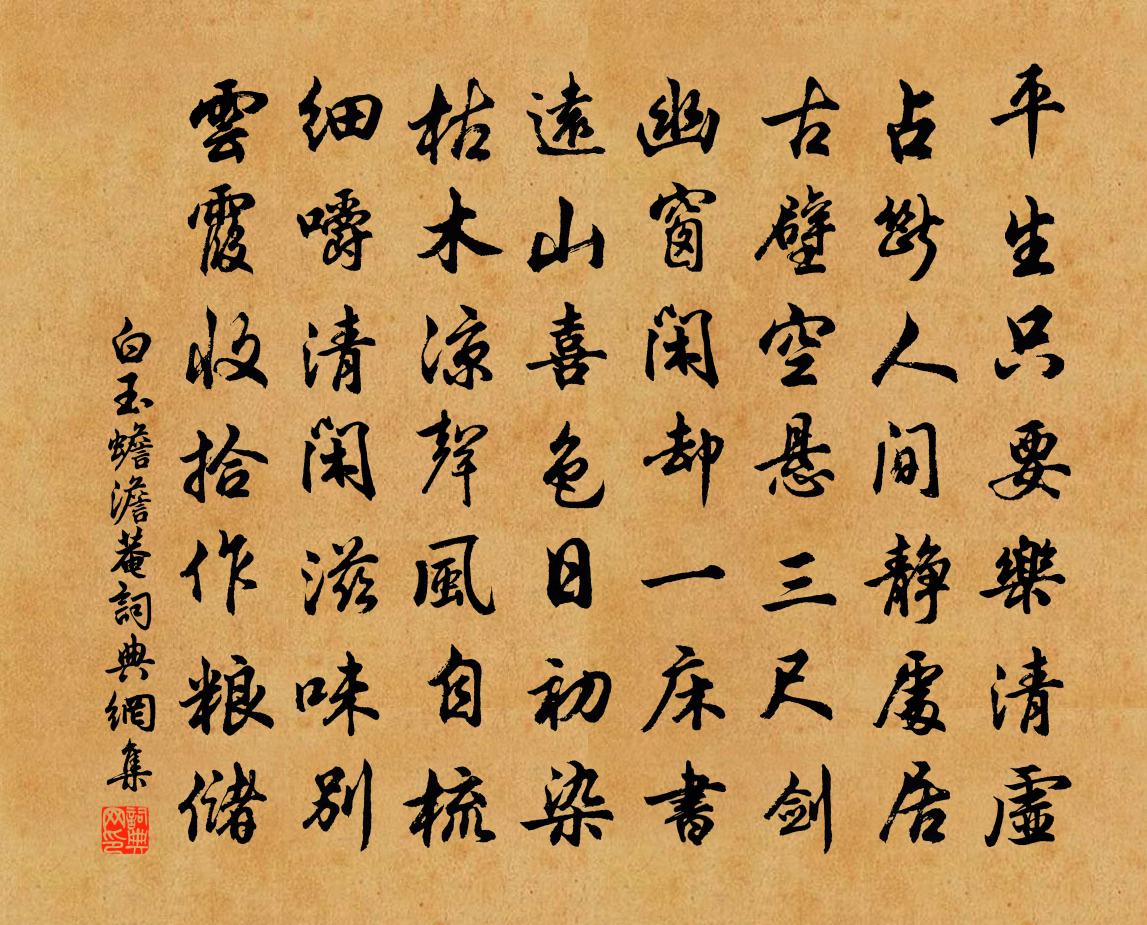 平生只要樂清虛
占斷人間靜處居
古壁空懸三尺劍
幽窗閑却一床書
遠山喜色日初染
枯木涼聲風自梳
細嚼清閑滋味別
雲霞收拾作粮儲
白玉蟾澹菴詞典網集
詞典網印